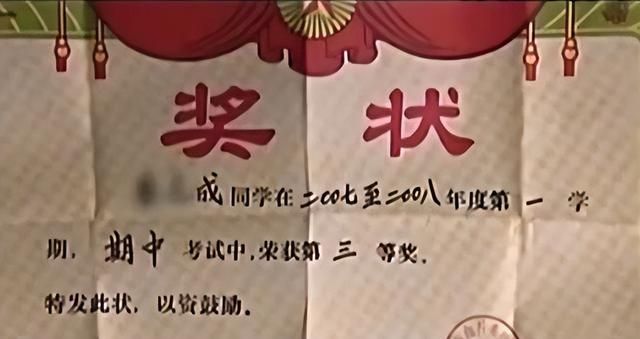 奖状
成同学在二00七至二00八年度第一学
期,期中考试中,荣获第三等奖.
特发此状,以资鼓励。